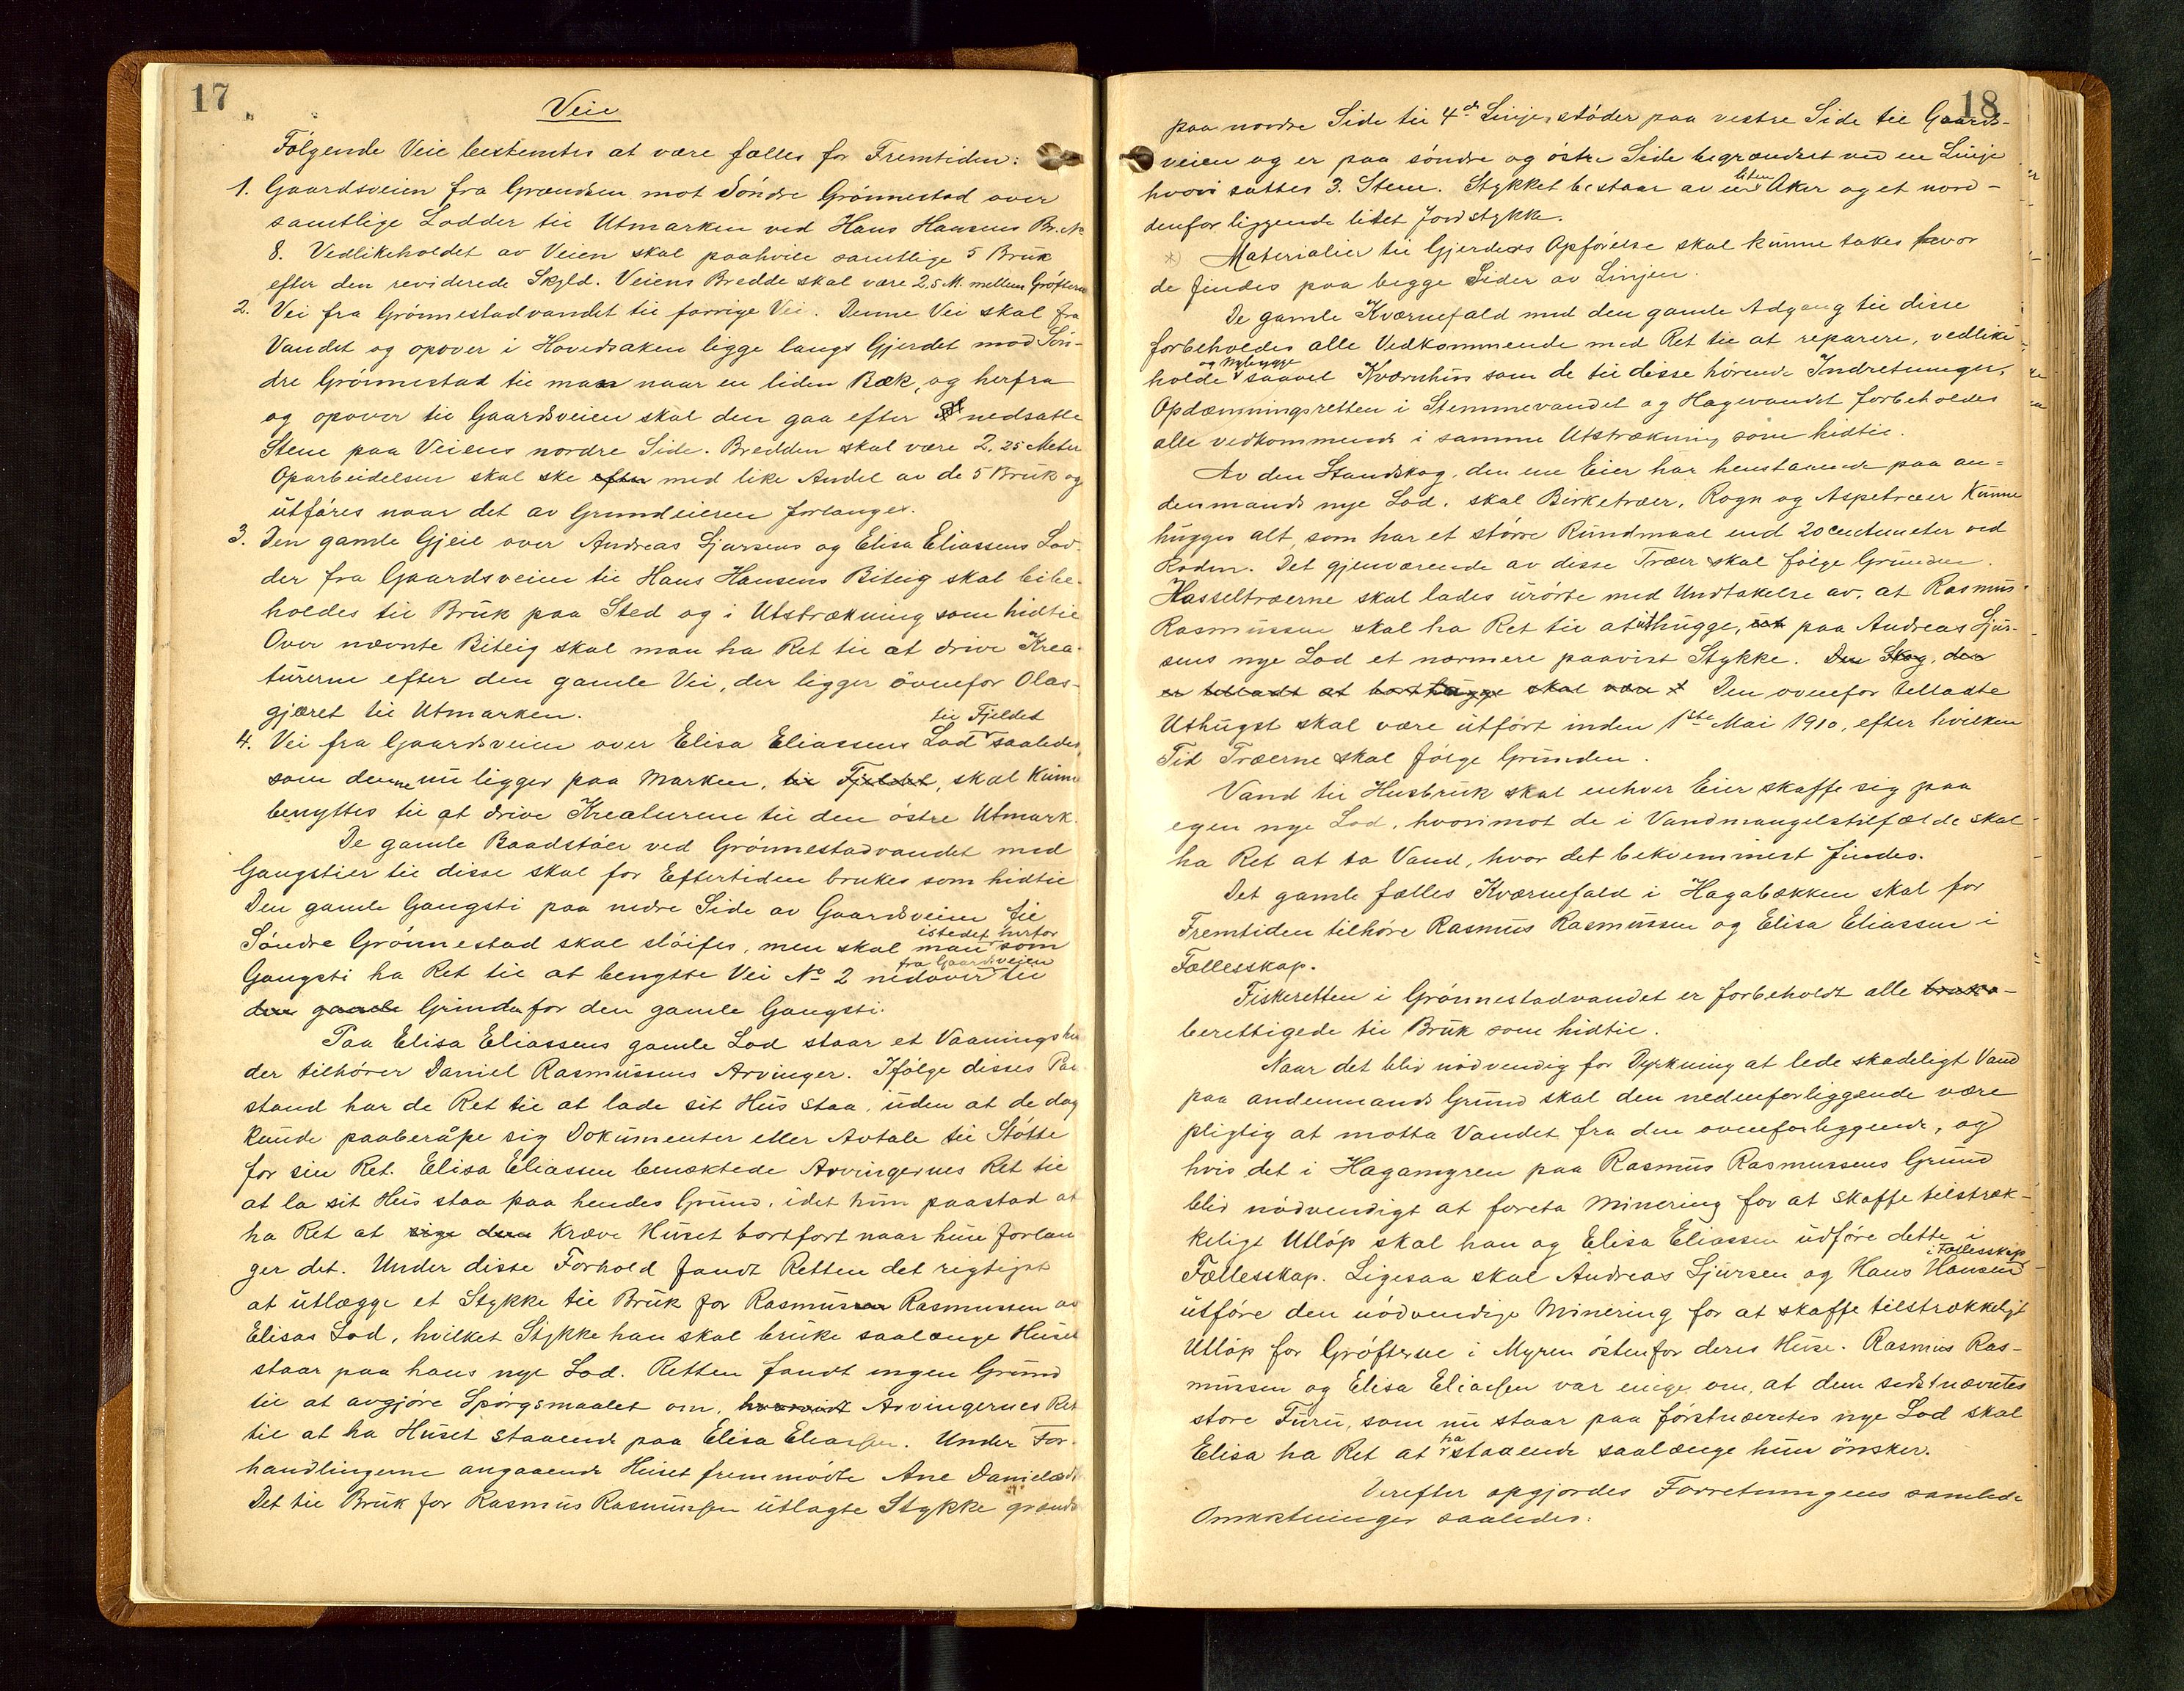 17
Veie
Følgende Veie bestemtes at være fælles for Fremtiden:
1. Gaardsveien fra Grændsen mot Søndre Grønnestad over
samtlige Lodder til Utmarken ved Hans Hansens Br. №
8. Vedlikeholdet av Veien skal paahvile samtlige 5 Bruk
efter den reviderede Skyld. Veiens Bredde skal være 2,5 M. mellem Grøfterne
2. Vei fra Grønnestadvandet til forrige Vei. Denne Vei skal fra
Vandet og opover i Hovedsaken ligge langs Gjerdet mod Søn-
dre Grønnestad til man naar en liden Bæk, og herfra
og opover til Gaardsveien skal den gaa efter nedsatte
Stene paa Veiens nordre Side. Bredden skal være 2,25 Meter
Oparbeidelsen skal ske efter med like Andel av de 5 Bruk og
utføres naar det av Grundeieren forlanges.
3. Den gamle Gjeil over Andreas Sjursens og Elisa Eliassens Lod-
der fra Gaardsveien til Hans Hansens Biteig skal bibe-
holdes til Bruk paa Sted og i Utstrækning som hidtil
Over nævnte Biteig skal man ha Ret til at drive Krea-
turerne efter den gamle Vei, der ligger ovenfor Olas-
gjæret til Utmarken.
til Fjeldet
4. Vei fra Gaardsveien over Elisa Eliassens Lod saaledes
som denne nu ligger paa Marken, til Fjeldet, skal kunne
benyttes til at drive Kreaturene til den østre Utmark.
De gamle Baadstøer ved Grønnestadvandet med
Gangstier til disse skal for Eftertiden brukes som hidtil
Den gamle Gangsti paa nedre Side av Gaardsveien til
istedet herfor
Søndre Grønnestad skal sløifes, men skal man som
fra Gaardsveien
Gangsti ha Ret til at benytte Vei No 2 nedover til
den gamle Grinda for den gamle Gangsti.
Paa Elisa Eliassens gamle Lod staar et Vaaningshu
der tilhører Daniel Rasmussens Arvinger. Ifølge disses Paa
stand har de Ret til at lade sit Hus staa, uden at de dog
kunde paaberåpe sig Dokumenter eller Avtale til Støtte
for sin Ret. Elisa Eliassen benektede Arvingernes Ret til
at la sit Hus staa paa hendes Grund, idet hun paastod at
ha Ret at sige dem Kræve Huset bortført naar hun forlan
ger det. Under disse Forhold fandt Retten det rigtigst
at utlægge et Stykke til Bruk for Rasmussen Rasmussen av
Elisas Lod, hvilket Stykke han skal bruke saalænge Huset
staar paa hans nye Lod. Retten fandt ingen Grund
til at avgjøre Spørgsmaalet om, hvorvidt Arvingernes Ret
til at ha Huset staaende paa Elisa Eliassen. Under For-
handlingerne angaaende Huset fremmødte Ane Danielsdt
Det til Bruk for Rasmus Rasmussen utlagte Stykke grænds
18
paa nordre Side til 4de Linje, støder paa vestre Side til Gaards-
veien og er paa søndre og østre Side begrændset ved en Linje
liten
hvori sattes 3. Stene. Stykket bestaar av en Aker og et nord-
denfor liggende litet Jordstykke.
x) Materialier til Gjerdets Opførelse skal kunne takes hvor
de findes paa begge Sider av Linjen.
De gamle Kværnefald med den gamle Adgang til disse
forbeholdes alle Vedkommende med Ret til at reparere, vedlike-
og nybygge
holde saavel Kværnhus som de til disse hørende Indretninger.
Opdæmningsretten i Stemmevandet og Hagevandet forbeholdes
alle vedkommende i samme Utstrækning som hidtil.
Av den Standskog, den ene Eier har henstaaende paa an-
denmands nye Lod, skal Birketræer, Rogn og Aspetræer kunne
hugges alt, som har et større Rundmaal end 20 centimeter ved
Roden. Det gjenværende av disse Træer skal følge Grunden.
Hasseltræerne skal lades urørte med Undtakelse av, at Rasmus
Rasmussen skal ha Ret til at uthugge, ut paa Andreas Sjur-
sens nye Lod et nærmere paavist Stykke. Den Skog, den
er tilladt at borthugge skal være Den ovenfor tilladte
Uthugst skal være utført inden 1ste Mai 1910, efter hvilken
Tid Træerne skal følge Grunden.
Vand til Husbruk skal enhver Eier skaffe sig paa
egen nye Lod, hvorimot de i Vandmangelstilfælde skal
ha Ret at ta Vand, hvor det bekvemmest findes.
Det gamle fælles Kværnefald i Hagabækken skal for
Fremtiden tilhøre Rasmus Rasmussen og Elisa Eliassen i
Fællesskap.
Fiskeretten i Grønnestadvandet er forbeholdt alle
berettigede til Bruk som hidtil.
Naar det blir nødvendig for Dyrkning at lede skadeligt Vand
paa andenmands Grund skal den nedenforliggende være
pligtig at motta Vandet fra den ovenforliggende, og
hvis det i Hagamyren paa Rasmus Rasmussens Grund
blir nødvendigt at foreta Minering for at skaffe tilstræk-
keligt Utløp skal han og Elisa Eliassen udføre dette i
i Fællesskap
Fællesskap. Ligesaa skal Andreas Sjursen og Hans Hansen
utføre den nødvendige Minering for at skaffe tilstrækkeligt
Utløp for Grøfterne i Myren østenfor deres Huse. Rasmus Ras-
mussen og Elisa Eliassen var enige om, at den sidstnævntes
store Furu, som nu staar paa førstnævntes nye Lod skal
ha
Elisa ha Ret at staaende saalænge hun ønsker.
Derefter opgjordes Forretningens samlede
Omkostninger saaledes: